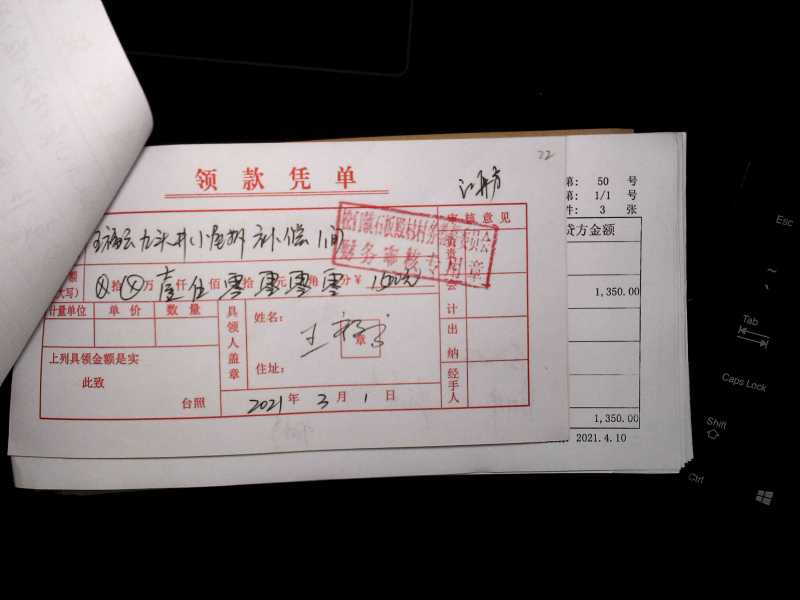 22
领款凭单
王福云九头井小伍圾补偿1间
财务审核专用章
审核意见
额
大写)
⊗拾⊗万壹仟伍佰零拾零元零角零分¥1500元
会计
计量单位 单价 数量
具领人盖章
姓名:
王福云
章
住址:
出纳
上列具领金额是实
此致
台照
经手人
2021年3月1日
第: 50 号
第: 1/1 号
件: 3 张
贷方金额
1,350.00
1,350.00
2021.4.10
Esc
Tab
Caps Lock
Shift
Ctrl